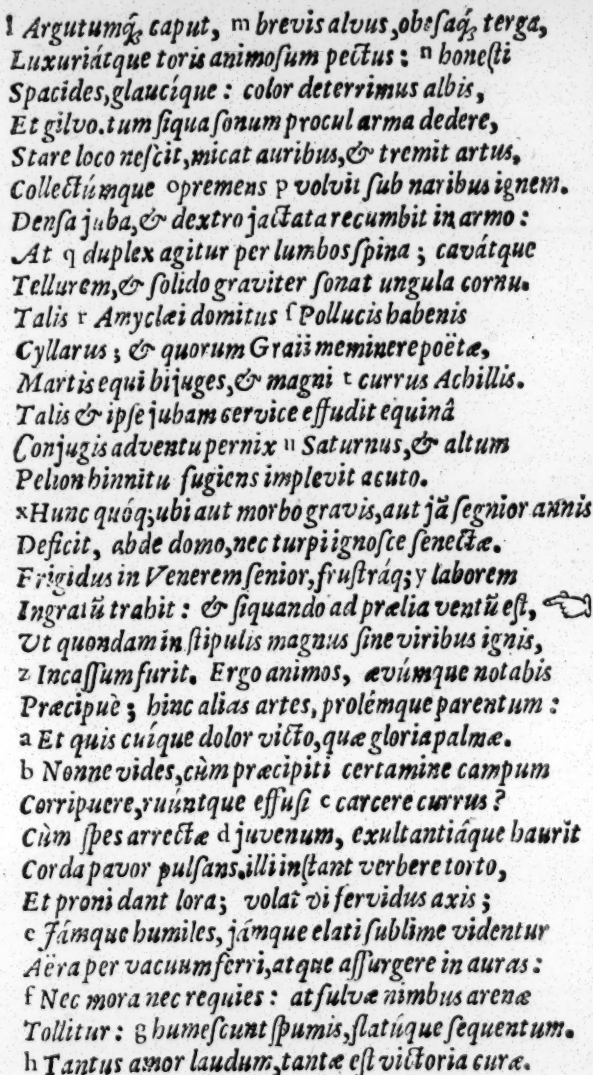 l Argutumq́; caput, m brevis alvus, obesaq́; terga,
Luxuriátque toris animosum pectus: n honesti
Spacides, glaucíque: color deterrimus albis,
Et gilvo. tum siqua sonum procul arma dedere,
Stare loco nescit, micat auribus, & tremit artus,
Collectúmque o premens p volvit sub naribus ignem.
Densa juba, & dextro jactata recumbit in armo:
At q duplex agitur per lumbos spina; cavátque
Tellurem, & solido graviter sonat ungula cornu.
Talis r Amyclæi domitus ſ Pollucis habenis
Cyllarus; & quorum Graii meminere poëtæ,
Martis equi bijuges, & magni t currus Achillis.
Talis & ipse jubam cervice effudit equinâ
Conjugis adventu pernix u Saturnus, & altum
Pelion hinnitu fugiens implevit acuto.
x Hunc quóq; ubi aut morbo gravis, aut jã segnior annis
Deficit, abde domo, nec turpi ignosce senectæ.
Frigidus in Venerem senior, frustráq; y laborem
Ingratũ trahit: & siquando ad prælia ventũ est, ☜
Ut quondam in stipulis magnus sine viribus ignis,
z Incassum furit. Ergo animos, ævúmque notabis
Præcipuè; hinc alias artes, prolémque parentum:
a Et quis cuíque dolor victo, quæ gloria palmæ.
b Nonne vides, cùm præcipiti certamine campum
Corripuere, ruúntque effusi c carcere currus?
Cùm spes arrectæ d juvenum, exultantiáque haurit
Corda pavor pulsans. illi instant verbere torto,
Et proni dant lora; volat vi fervidus axis;
e Jámque humiles, jámque elati sublime videntur
Aëra per vacuum ferri, atque assurgere in auras:
f Nec mora nec requies: at fulvæ nimbus arenæ
Tollitur: g humescunt spumis, flatúque sequentum.
h Tantus amor laudum, tantæ est victoria curæ.